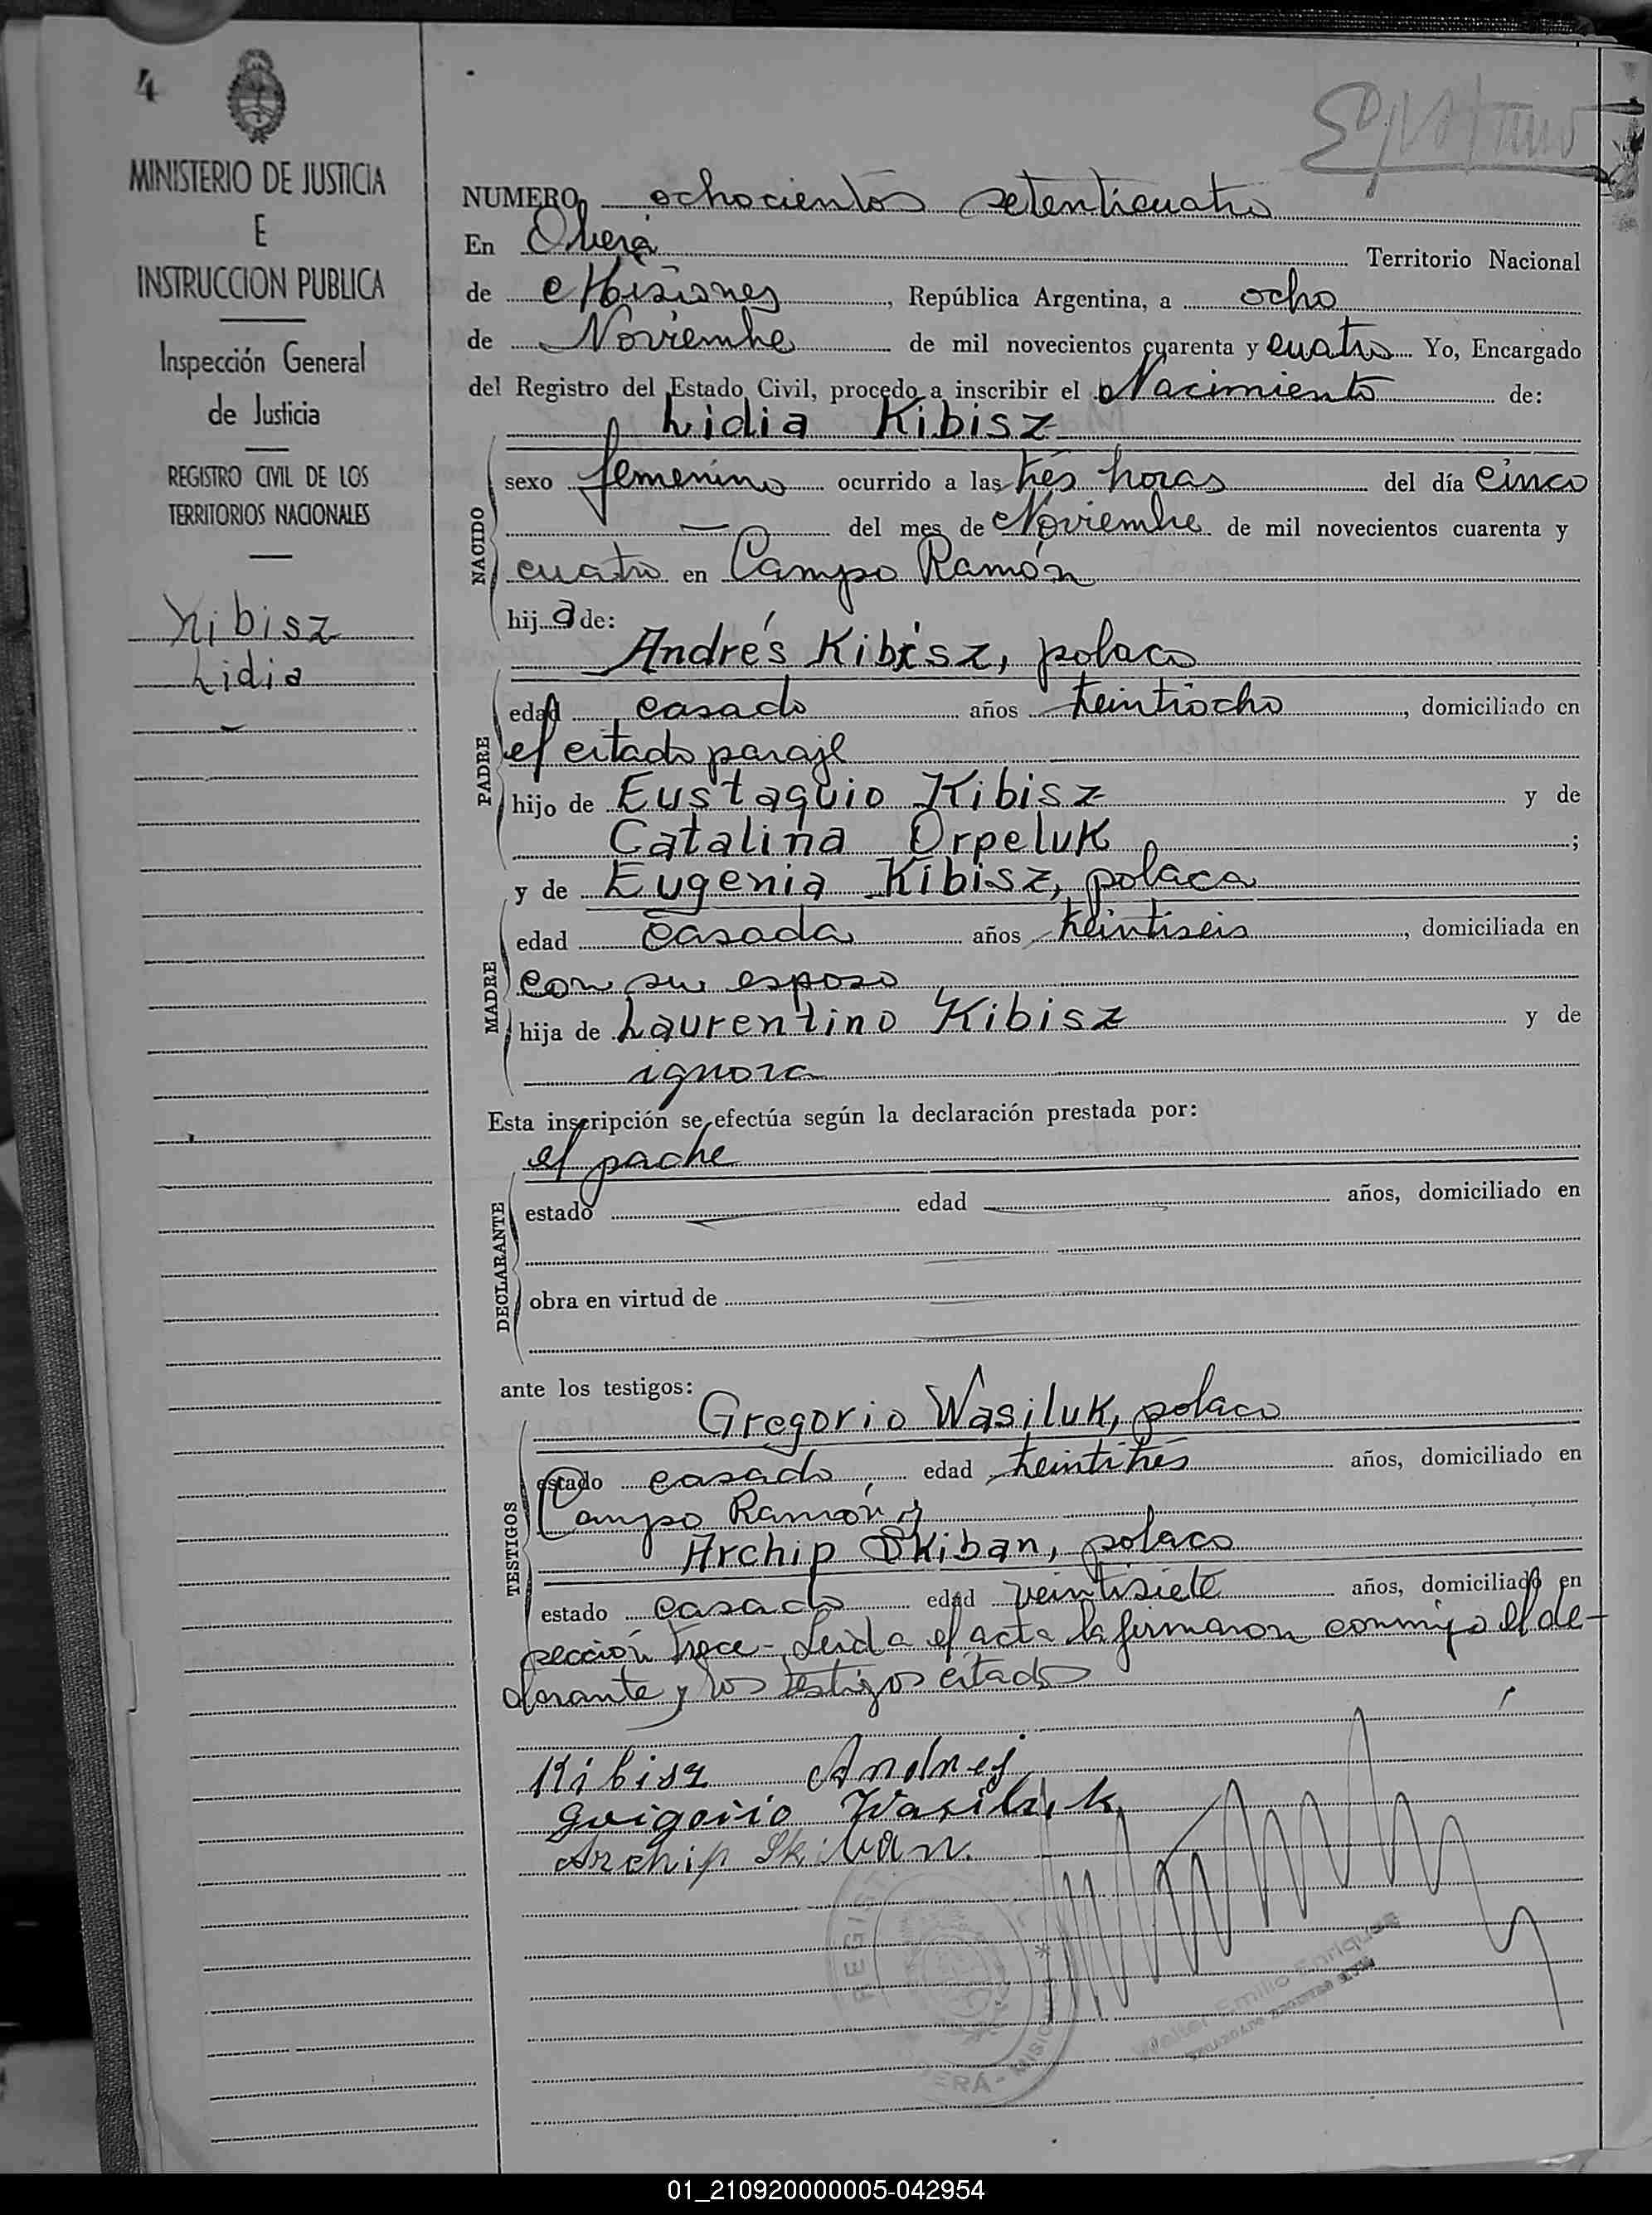 4
MINISTERIO DE JUSTICIA
E
INSTRUCCION PUBLICA
Inspección General
de Justicia
REGISTRO CIVIL DE LOS
TERRITORIOS NACIONALES
Kibisz
Lidia
NUMERO ochocientos setenticuatro
En Oberá Territorio Nacional
de Misiones, República Argentina, a ocho
de Noviembre de mil novecientos cuarenta y cuatro Yo, Encargado
del Registro del Estado Civil, procedo a inscribir el Nacimiento de:
Lidia Kibisz
NACIDO
sexo femenino ocurrido a las tres horas del día cinco
del mes de Noviembre de mil novecientos cuarenta y
cuatro en Campo Ramón
hija de:
Andrés Kibisz, polaco
PADRE
edad casado años treintiocho, domiciliado en
el citado paraje
hijo de Eustaquio Kibisz y de
Catalina Orpeluk;
y de Eugenia Kibisz, polaca
MADRE
edad casada años treintiseis, domiciliada en
con su esposo
hija de Laurentino Kibisz y de
ignora
Esta inscripción se efectúa según la declaración prestada por:
el padre
DECLARANTE
estado edad años, domiciliado en
obra en virtud de
ante los testigos:
Gregorio Wasiluk, polaco
TESTIGOS
estado casado edad treintitrés años, domiciliado en
Campo Ramón y
Archip Skiban, polaco
estado casado edad veintisiete años, domiciliado en
sección trece - Leída el acta la firmaron conmigo el de-
clarante y los testigos citados
Kibisz Andrej
Grigorio Wasiluk
Archip Skiban.
REGIST
OBERÁ - MISIO
Emilio Enrique
01_210920000005-042954